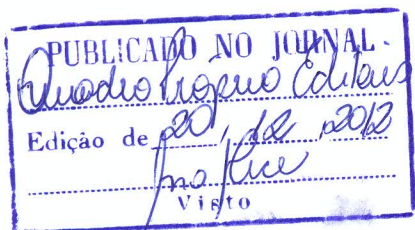 PUBLICADO NO JORNAL
Quadro Próprio Editais
Edição de 20, 12, 2012
Visto